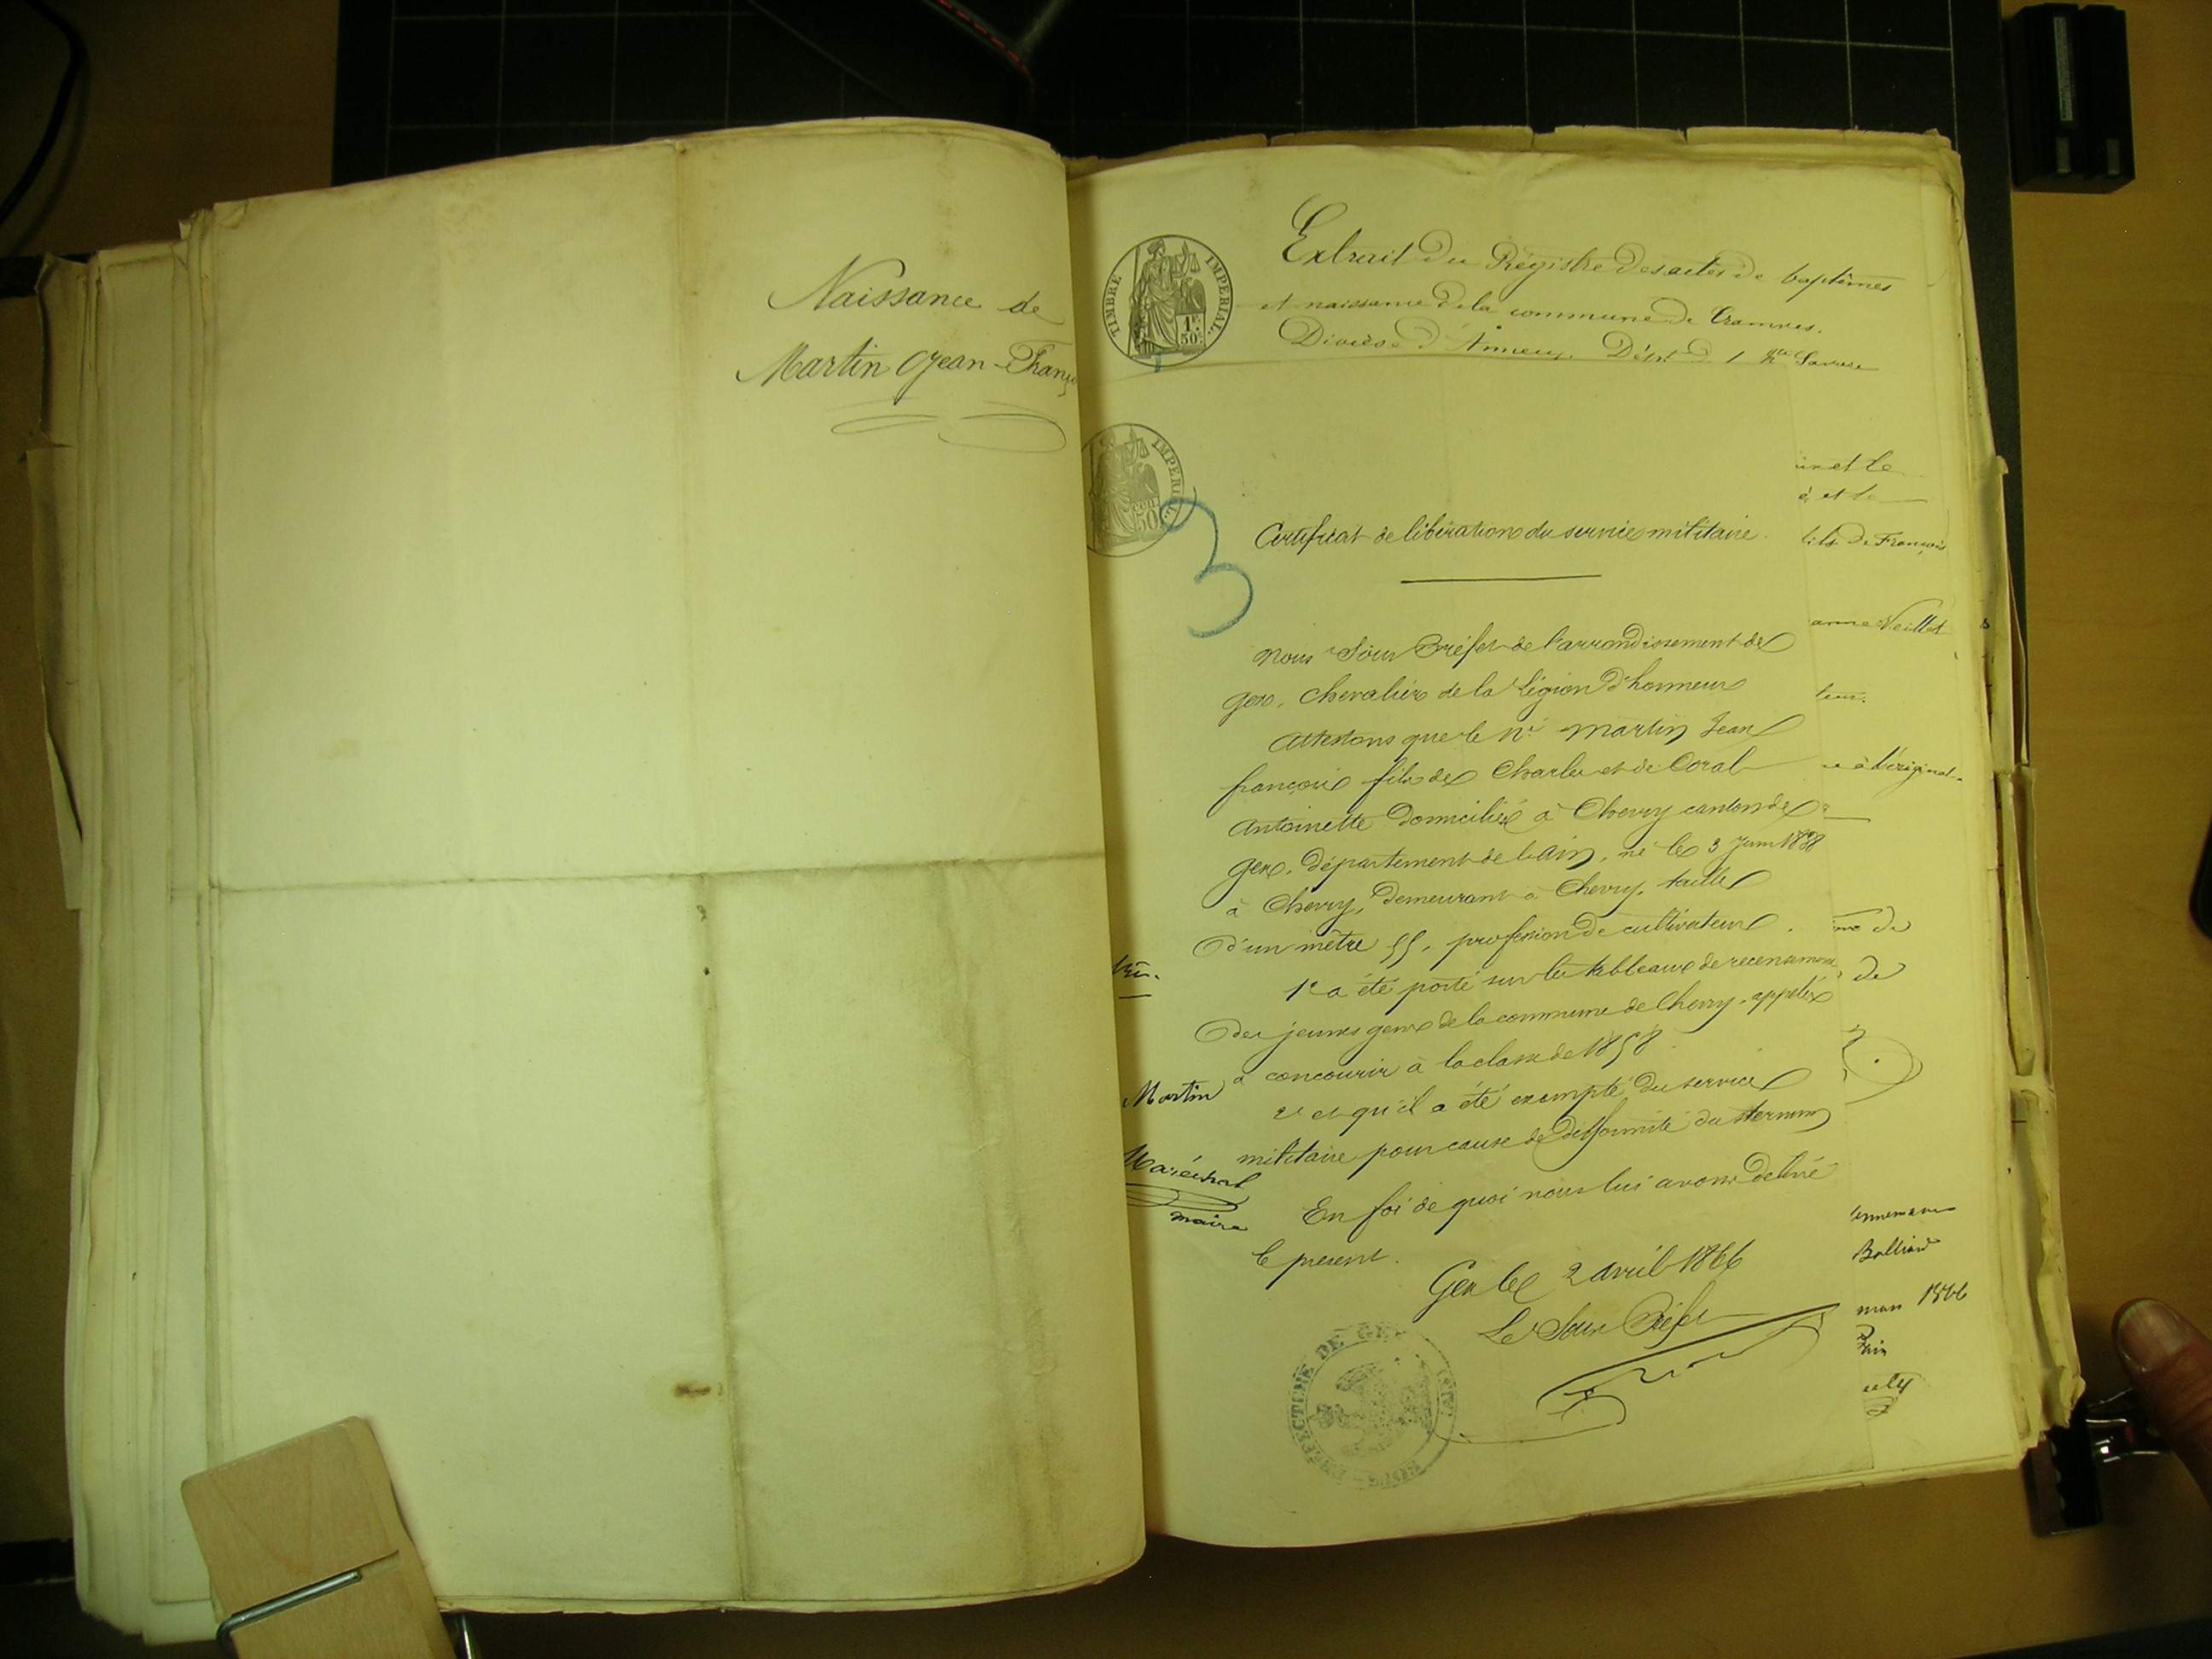 Naissance de
Martin Jean-Franç
TIMBRE IMPERIAL
1F.
50c
Extrait du Régistre des actes de baptêmes
et naissance de la commune de
Diocèse d'Annecy. Dépt de la Hte Savoie
IMPERIAL
cen
50
3
in et le
et le
fils de François
Certificat de libération du service militaire.
Nous Sous Préfet de l'arrondissement de
Gex, chevalier de la Légion d'honneur
Attestons que le Né Martin Jean
françois fils de Charles et de Coral
Antoinette domicilié à Chevry canton de
Gex, département de l'ain, né le 3 Juin 1838
à Chevry, demeurant à Chevry, taille
d'un mètre 55, profession de cultivateur.
1o a été porté sur les tableaux de recensement
des jeunes gens de la commune de Chevry, appelés
à concourir à la classe de 1858
2o et qu'il a été exempté du service
militaire pour cause de difformité du sternum
En foi de quoi nous lui avons délivré
le présent.
Gex le 2 avril 1866
Le Sous Préfet
SOUS-PRÉFECTURE DE GEX (AIN)
Martin
Maréchal
maire
anne Veillet
teur.
à l'original.
de
de
Balliard
mars 1866